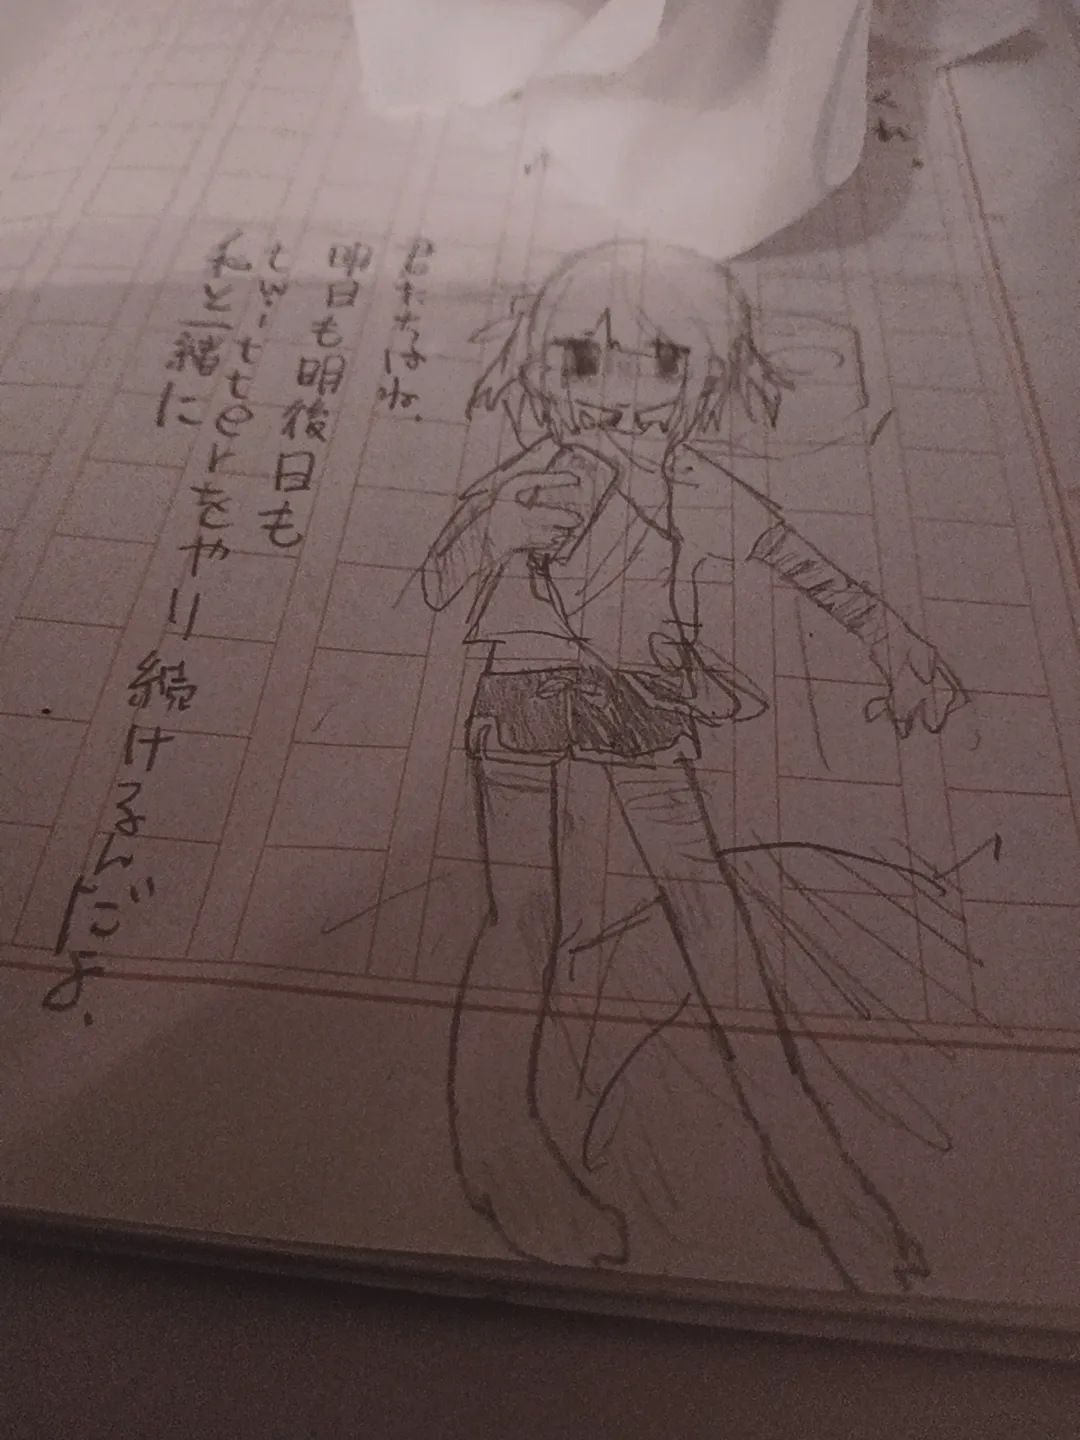 君たちはね、
明日も明後日も
twitterをやり続けるんごよ.
私と一緒に